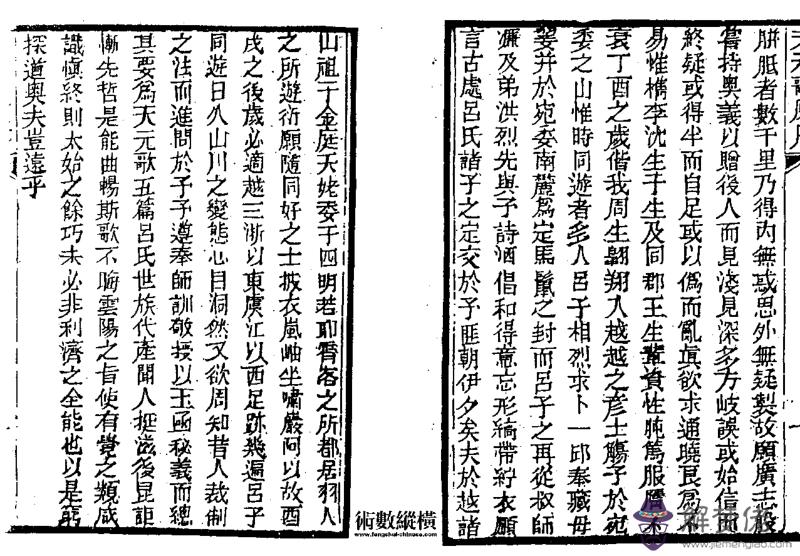 胼胝者數千里乃得內無惑思外無疑製故願廣志
嘗持奧義以贈後人而見淺見深多方岐誤或始信而
終疑或得半而自足或以偽而亂眞欲求通曉艮爲
易惟檇李沈生于生及同郡王生輩資性肫篤服膺不
衰丁酉之歲偕我周生翺翔入越越之彥士觴予於宛
委之山惟時同遊者多人呂子相烈求卜一邱奉藏母
婺幷於宛委南麓爲定馬鬣之封而呂子之再從叔師
濂及弟洪烈先與予詩酒倡和得意忘形縞帶紵衣願
言古處呂氏諸子之定交於予匪朝伊夕矣夫於越諸
山祖于金庭天姥委于四明若耶霄客之所都居羽人
之所遊衍願隨同好之士披衣嵐岫坐嘯巖阿以故酉
戌之後歲必適越三浙以東虞江以西足跡幾遍呂子
同遊日久山川之變態心目洞然又欲周知昔人裁制
之法而進問於予予遵奉師訓敬授以玉函秘義而總
其要爲天元歌五篇呂氏世族代產聞人挺滋後昆詎
慚先哲是能曲暢斯歌不晦雲陽之旨使有覺之類咸
識愼終則太始之餘巧未必非利濟之全能也以是窮
探道奧夫豈遠乎
術數縱橫
www.fengshui-chinese.com
解夢佛
www.jiemengfo.com